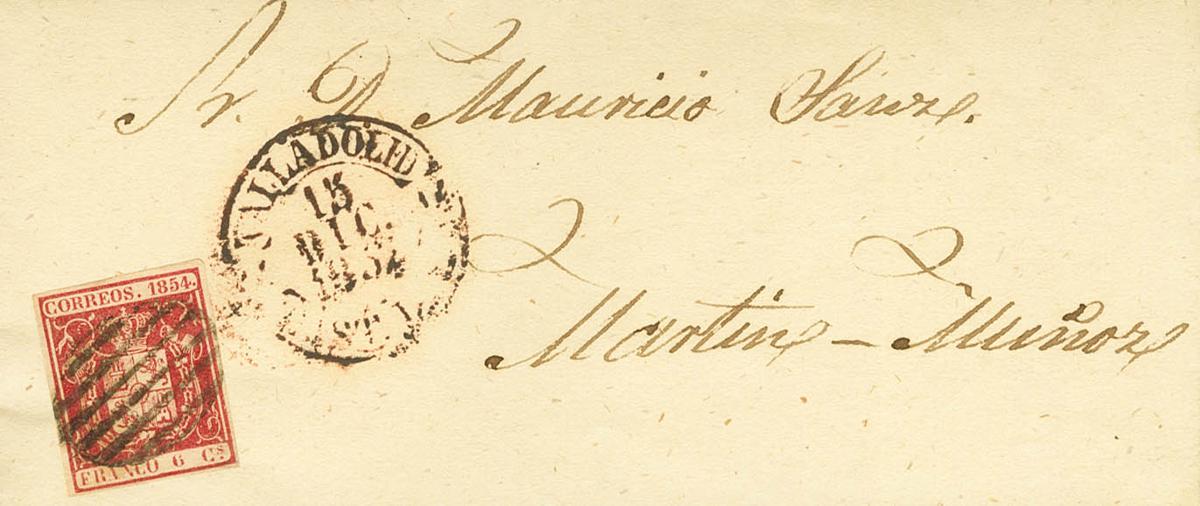 Sr. D. Mauricio Sanz.
VALLADOLID
13
DIC.
1854
Martin - Muñoz
CORREOS. 1854.
FRANCO 6 Cs